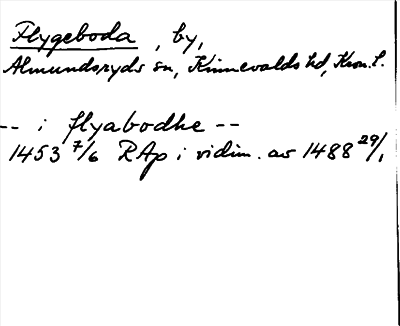 Flygeboda, by,
Almundsryds sn, Kinnevalds hd, Kron. l.
-- i flyabodhe --
1453 7/6 RAp i vidim. av 1488 29/1